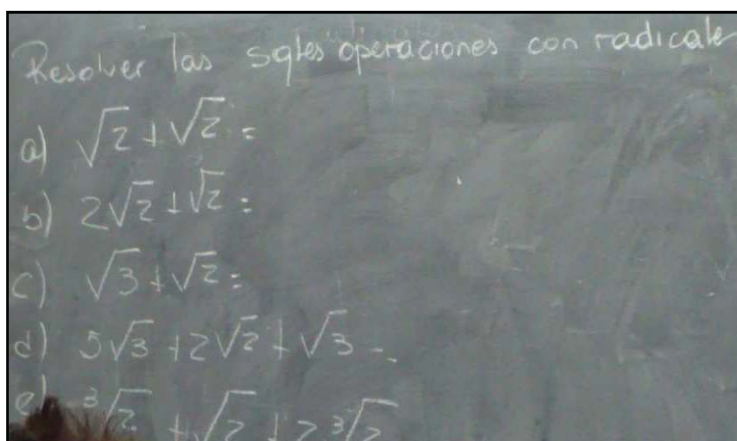 Resolver las sgtes operaciones con radicale
a) √2 + √2 =
b) 2√2 + √2 =
c) √3 + √2 =
d) 5√3 + 2√2 + √3 =
e) ∛2 + √2 + 2∛2